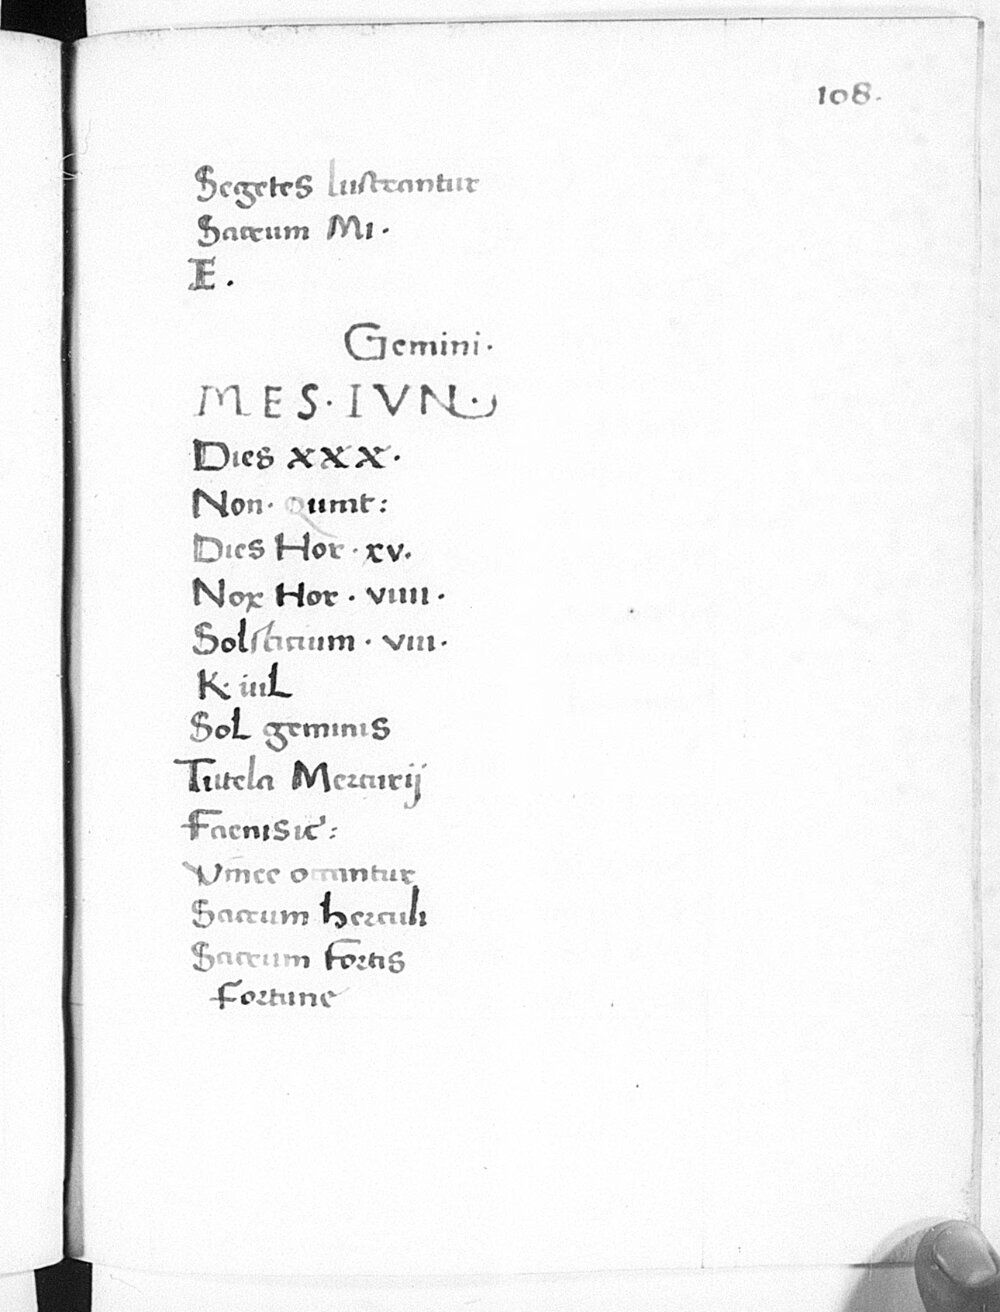 108.
Segetes lustrantur
Sacrum MI.
E.
Gemini.
MES. IVN.
Dies xxx.
Non. Quint:
Dies Hor. xv.
Nox Hor. viiii.
Solsticium. viii.
K. iuL
SoL geminis
Tutela Mercurij
Faenisic:
Vinee occantur
Sacrum herculi
Sacrum fortis
fortune